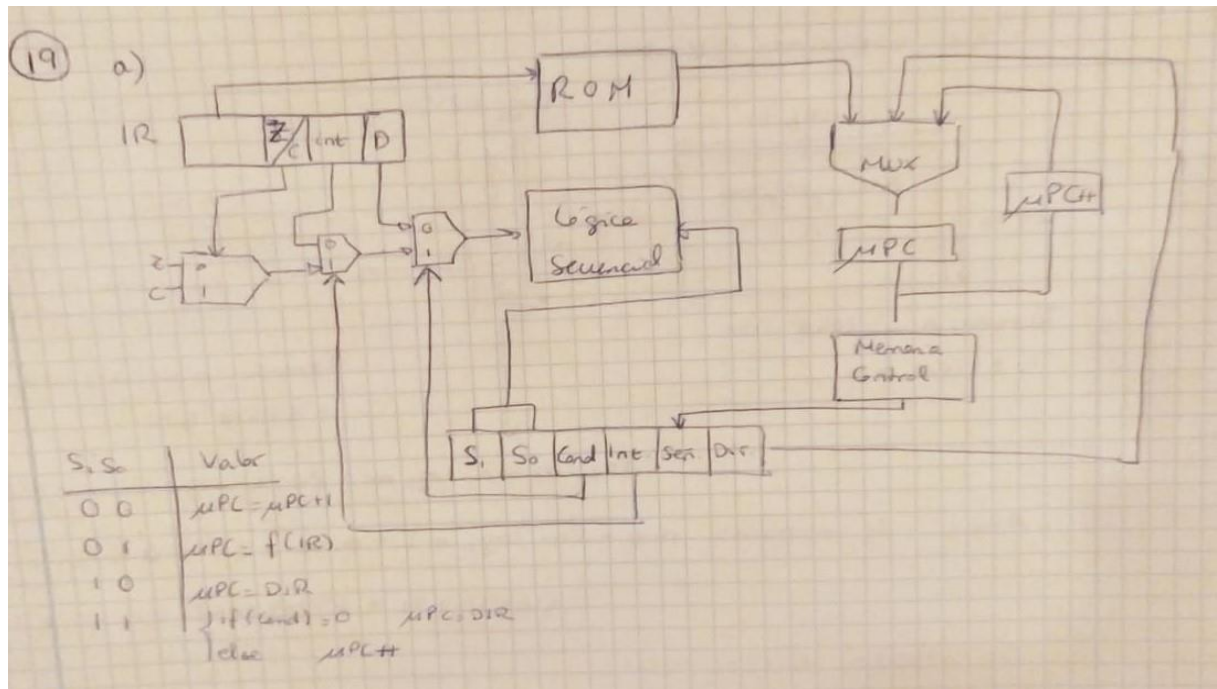 19 a)
ROM
IR Z/C int D
MUX
μPC++
Z 0
C 1
0
1
0
1
Lógica
Secuencial
μPC
Memoria
Control
S₁ S₀ Cond Int Señ Dir
S₁ S₀ Valor
0 0 μPC=μPC+1
0 1 μPC=f(IR)
1 0 μPC=DIR
1 1 if(cond)=0 μPC=DIR
else μPC++